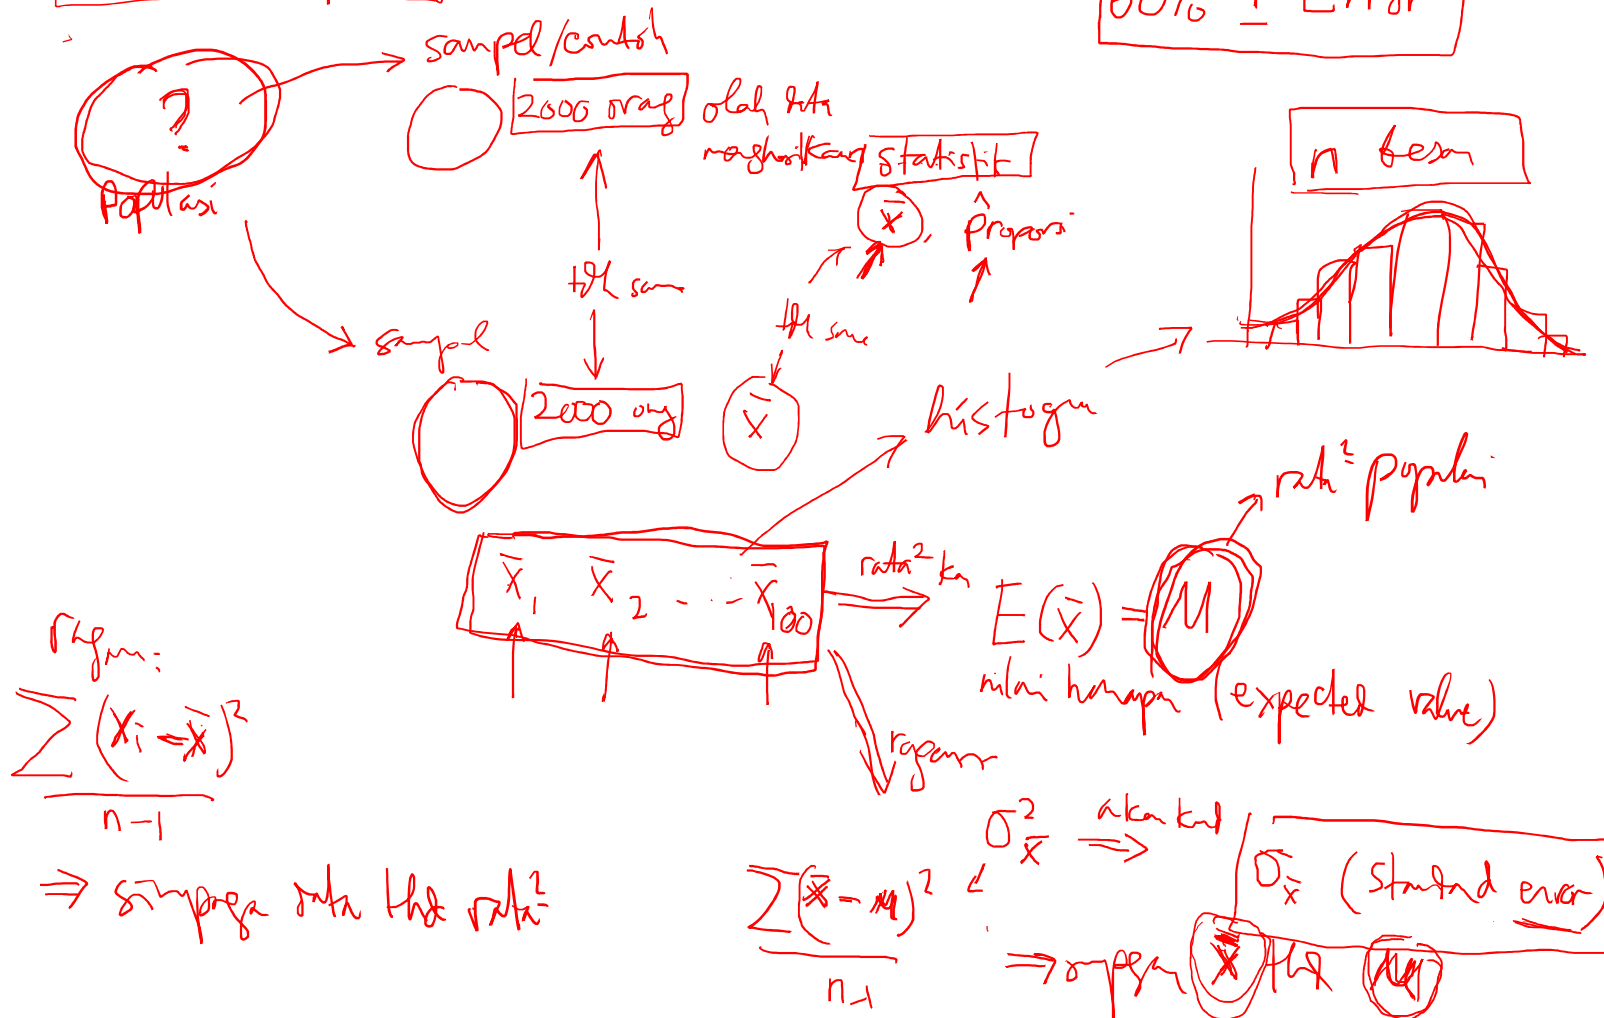 60% ± Error
sampel/contoh
?
populasi
2000 orag
olah data
menghasilkan statistik
x̄, p̂roporsi
n besar
tdk sama
tdk same
sampel
2000 org
x̄
histogram
rata² populasi
x̄₁ x̄₂ ... x̄₁₀₀
rata² kan
E(x̄) = μ
nilai harapan (expected value)
ragam:
∑(xᵢ - x̄)²
n-1
⇒ simpangan data thd rata²
σ²x̄ ⇒ akar kuad
σx̄ (standard error)
∑(x̄ - μ)²
n-1
⇒ simpangan x̄ thd μ